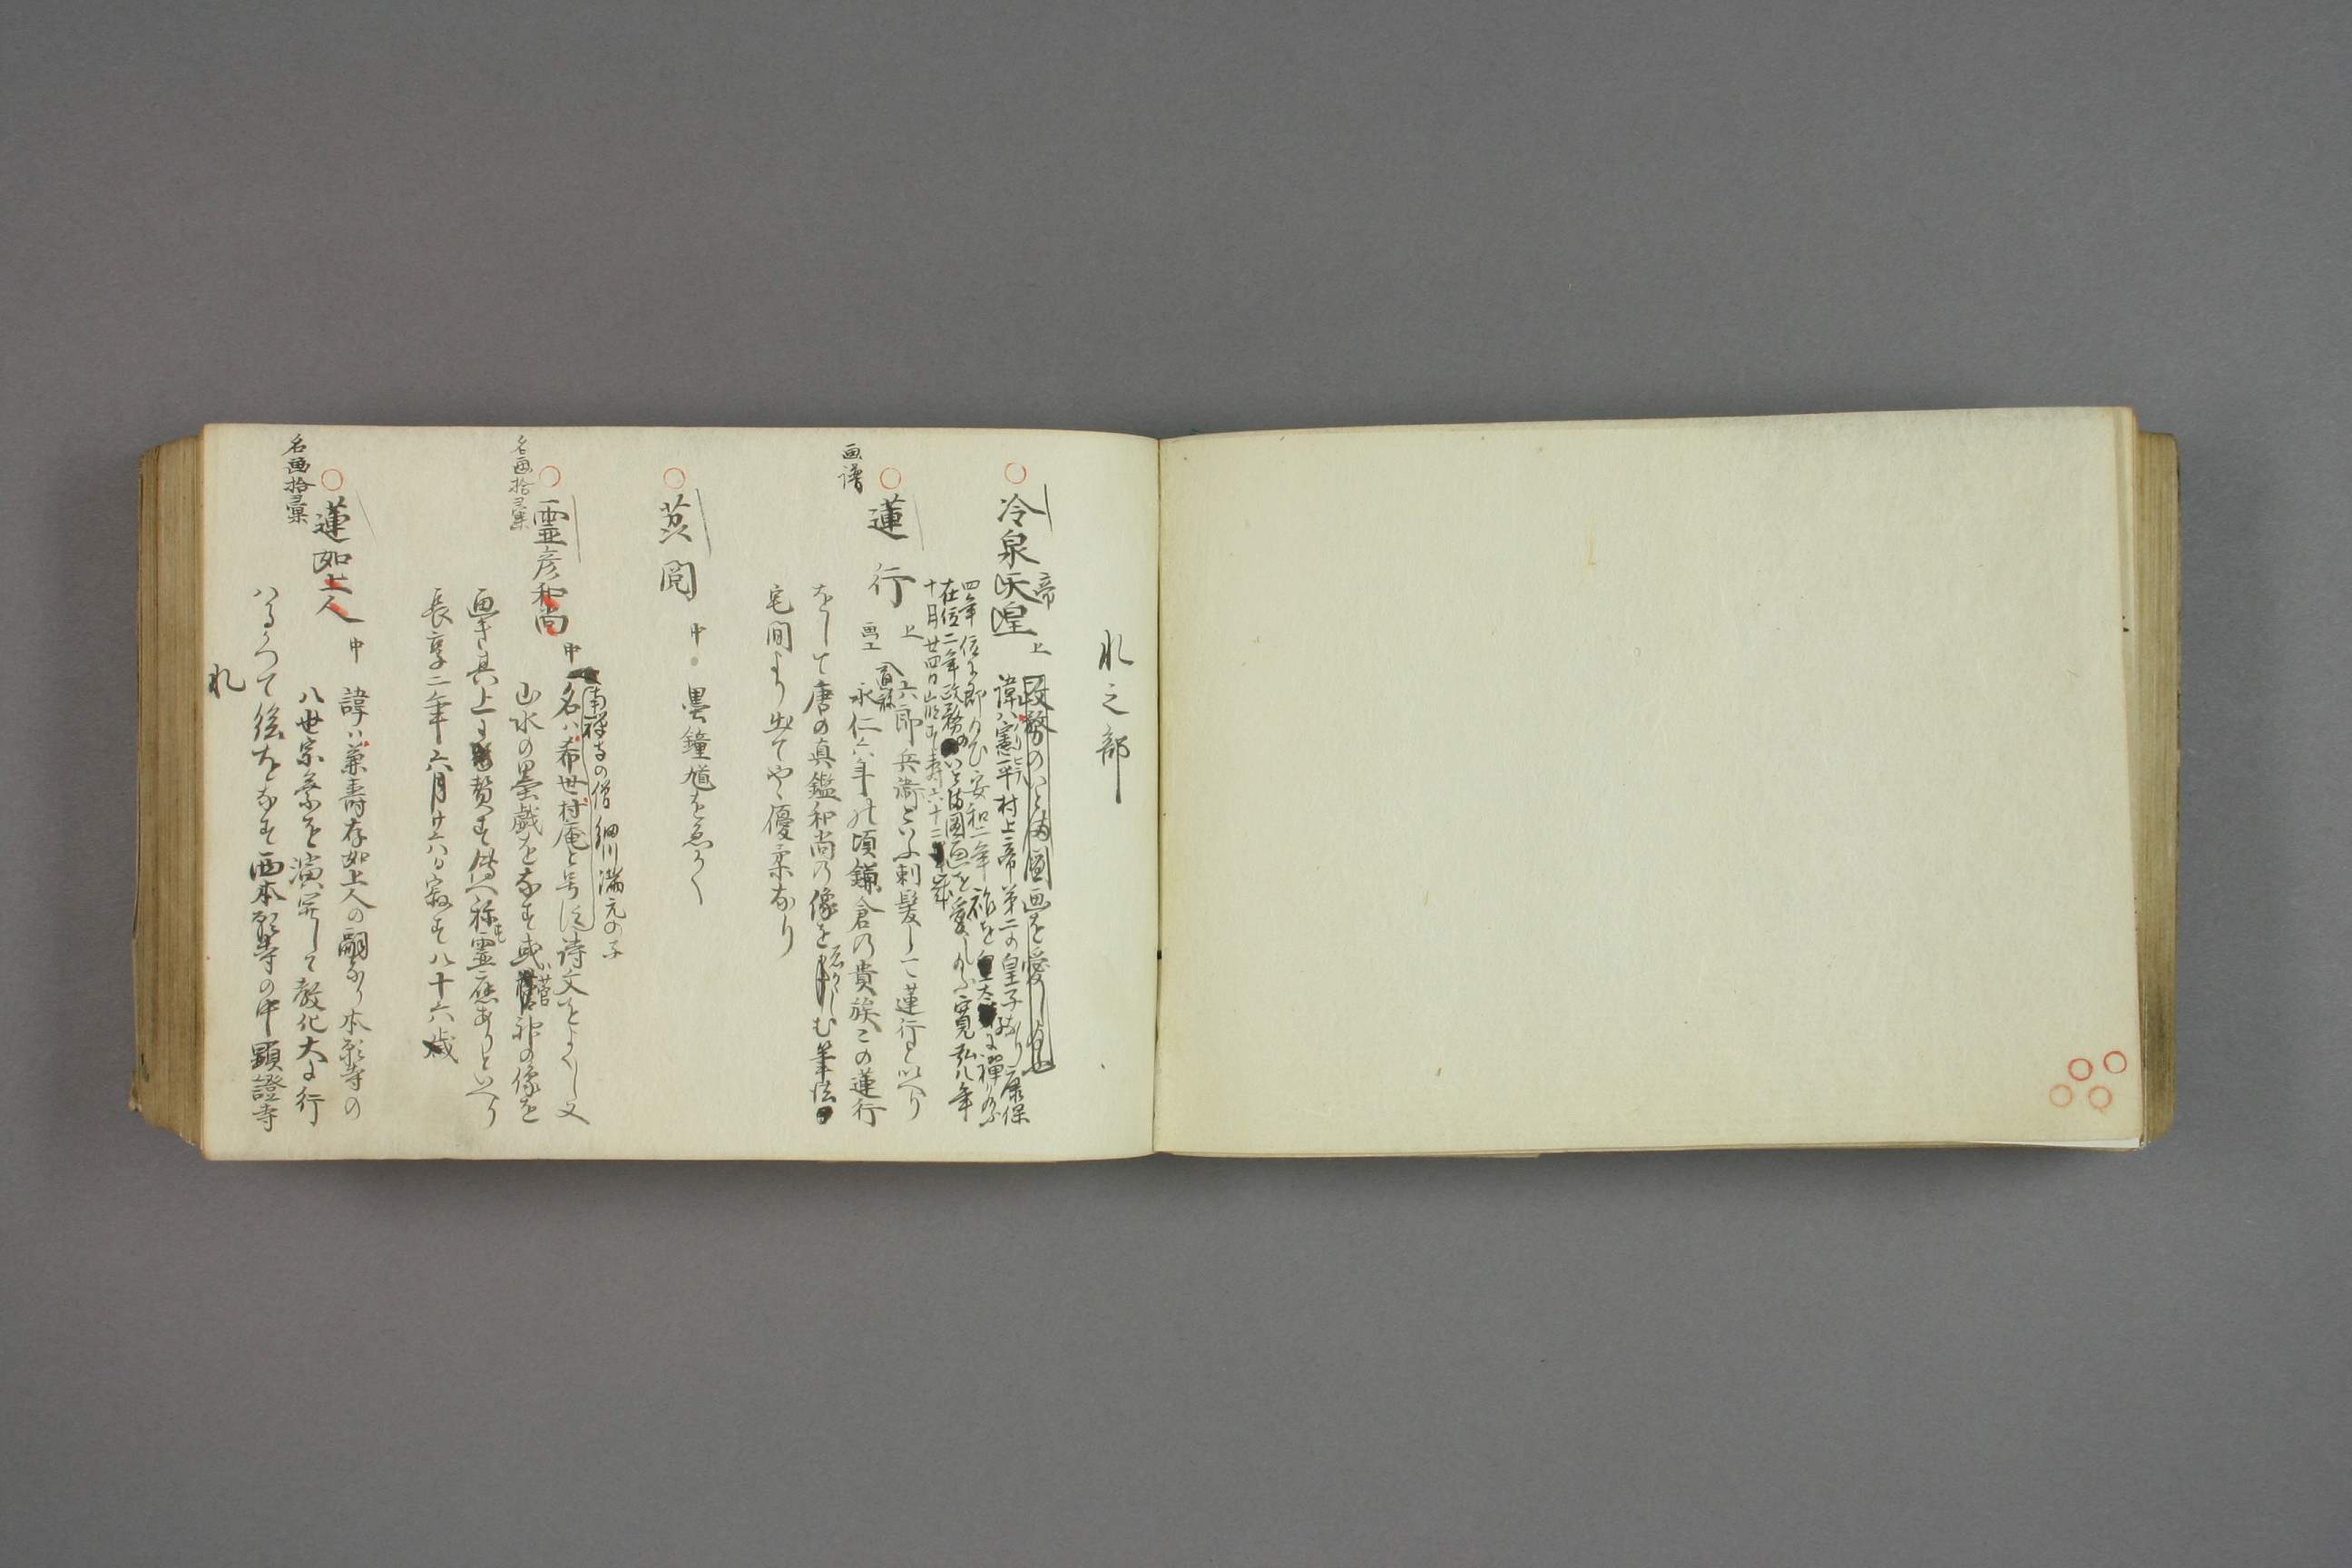 れ之部
冷泉天皇
帝
上
政務のいとま国画を愛し
諱ハ憲平村上帝第二の皇子なり康保
四年位に即
安和二年祚を皇太
に禅
在位二年政務のいとま国画を愛し
寛弘八年
十月廿四日
寿六十二
画譜
蓮行
上
六郎兵衛といふ剃髪して蓮行といへり
画工
永仁六年の頃鎌倉の貴族この蓮行
をして唐の真鑑和尚の像を
しむ筆法
宅間より出てやゝ優柔なり
中
墨鐘馗をゑかく
名画拾彙
霊彦和尚
中
南禅寺の僧細川満元の子
名ハ希世村庵と号す詩文をよくし又
山水の墨戯をなす或ハ菅神の像を
画き其上に賛す
霊応ありといへり
長享二年六月廿六日寂す八十六歳
名画拾彙
蓮如上人
中
諱ハ兼壽存如上人の嗣なり本願寺の
八世宗系を演
して教化大に行
ハる
て絵をなす西本願寺の中顕證寺
れ